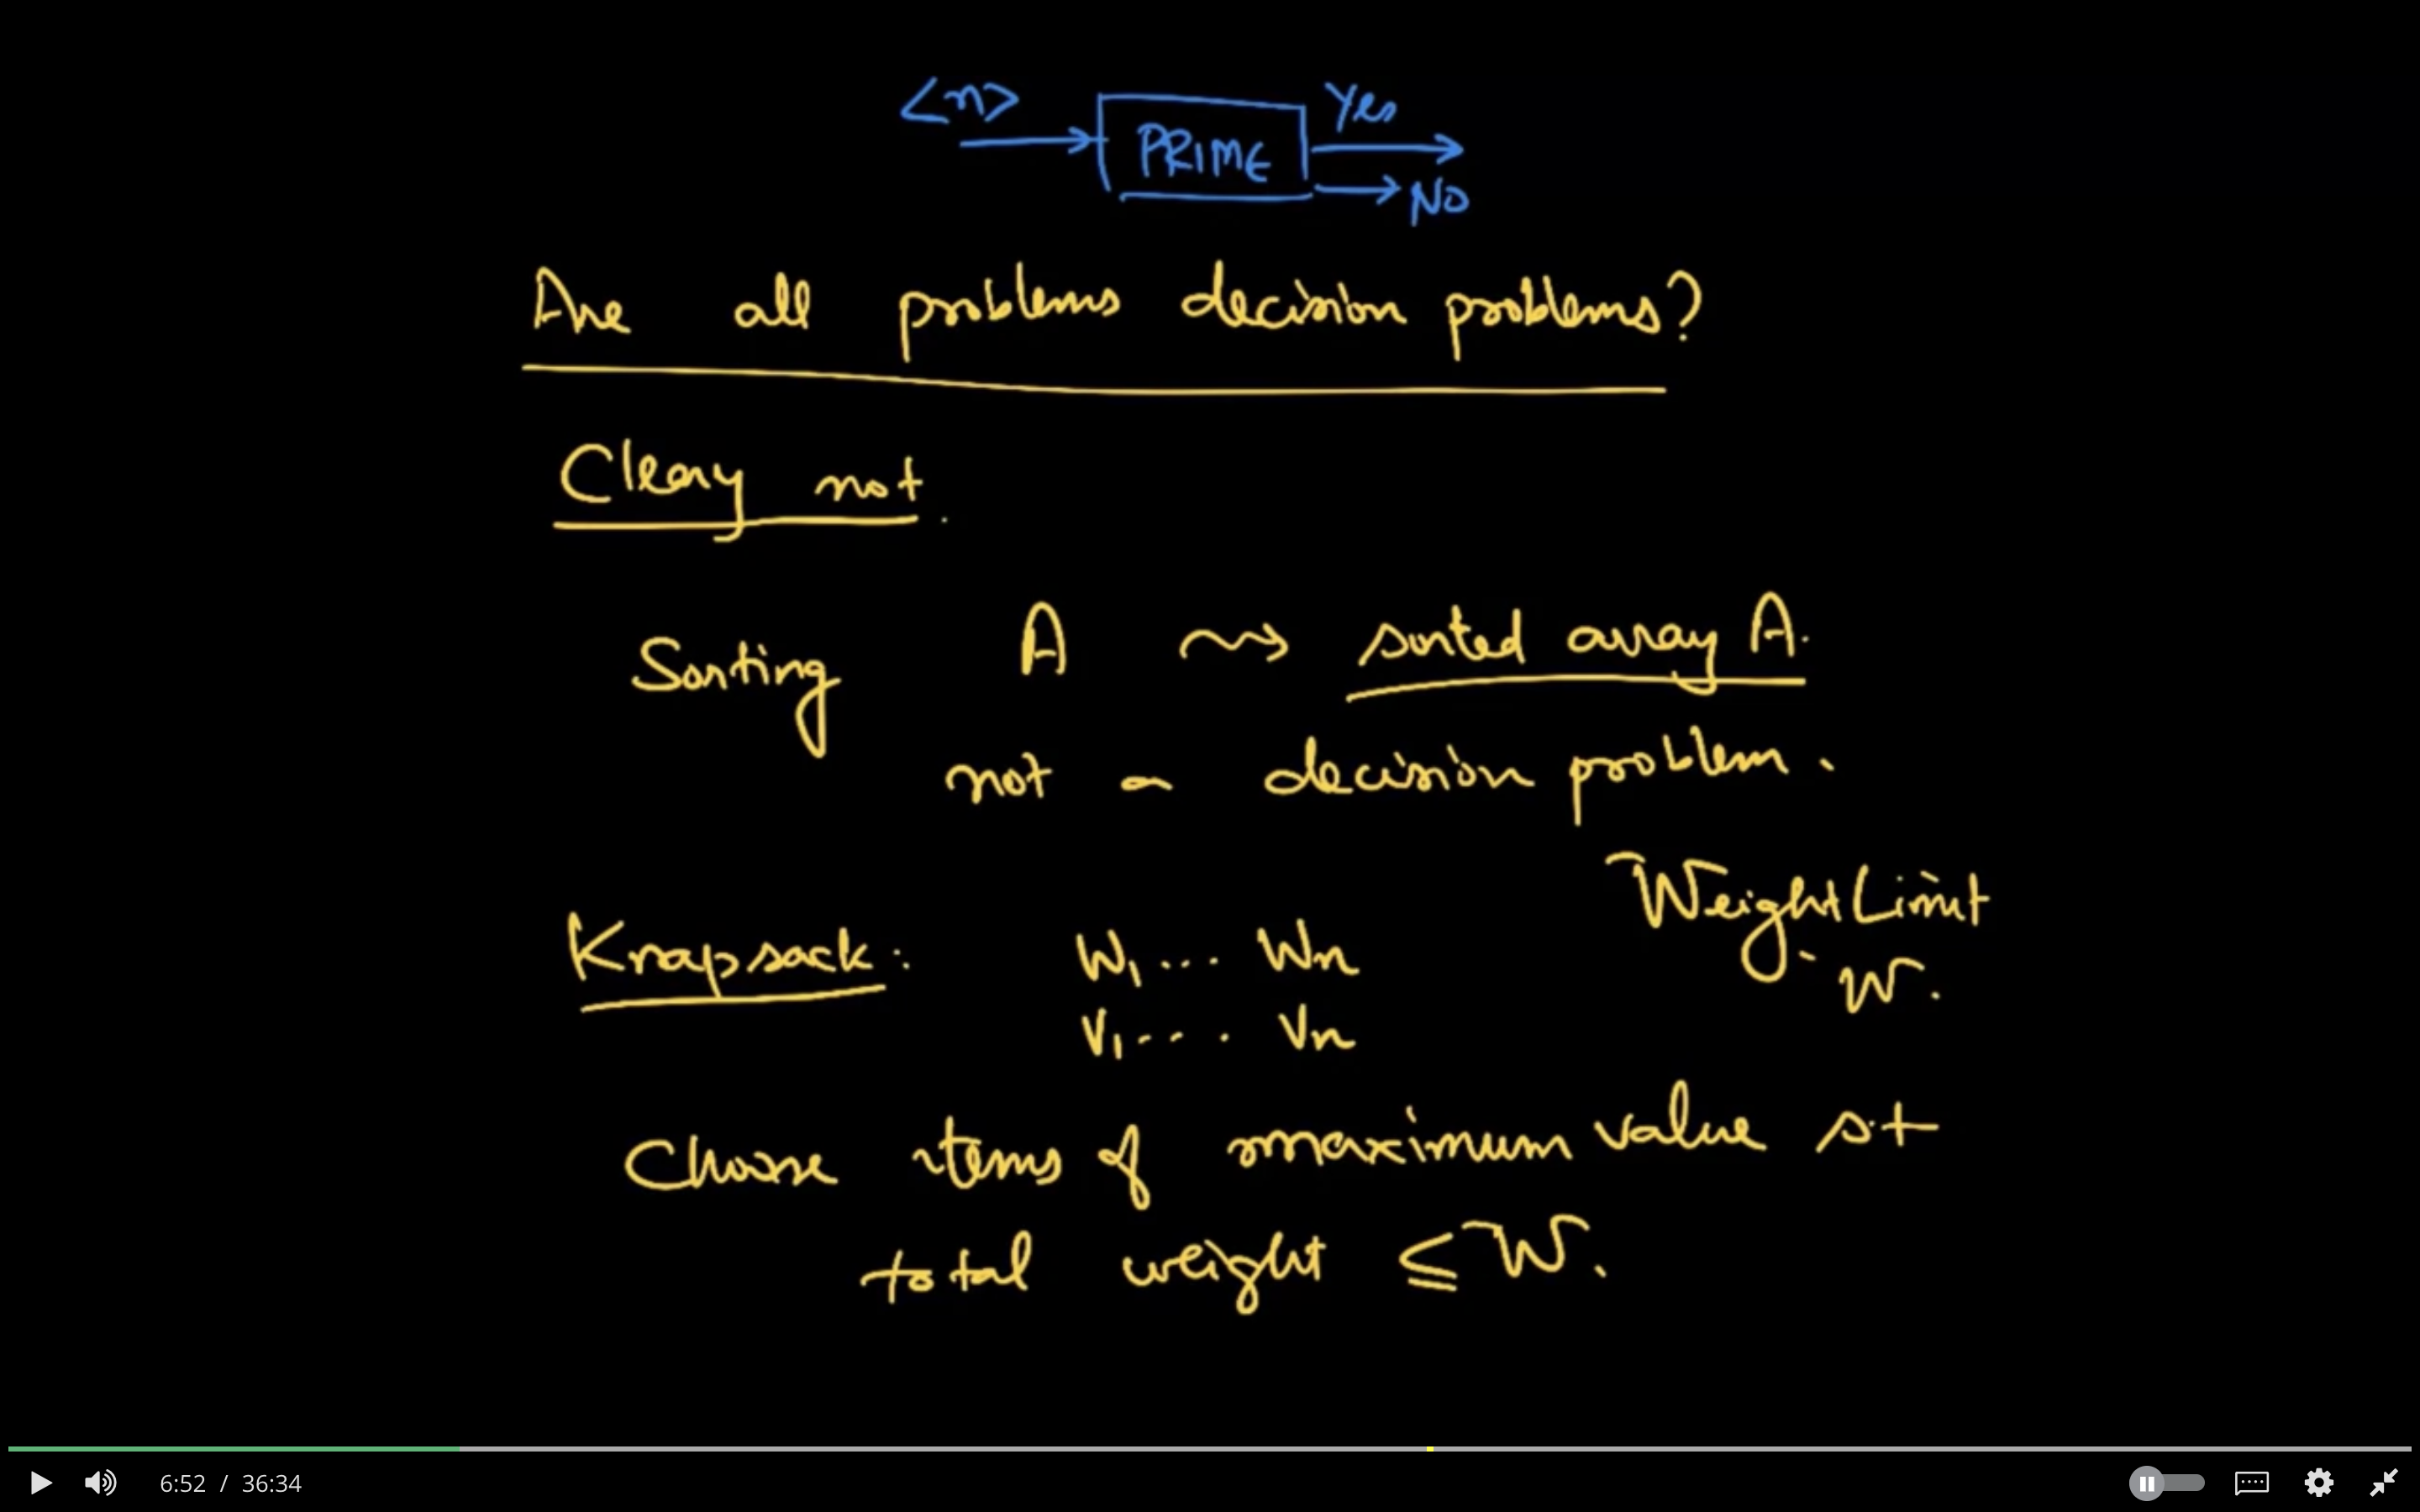 <n>
Yes
PRIME
No
Are all problems decision problems?
Cleary not.
Sorting A ⇝ sorted array A.
not a decision problem.
Weight Limit
W.
Knapsack: W1... Wn
V1.... Vn
Choose items of maximum value s.t
total weight ≤ W.
6:52 / 36:34